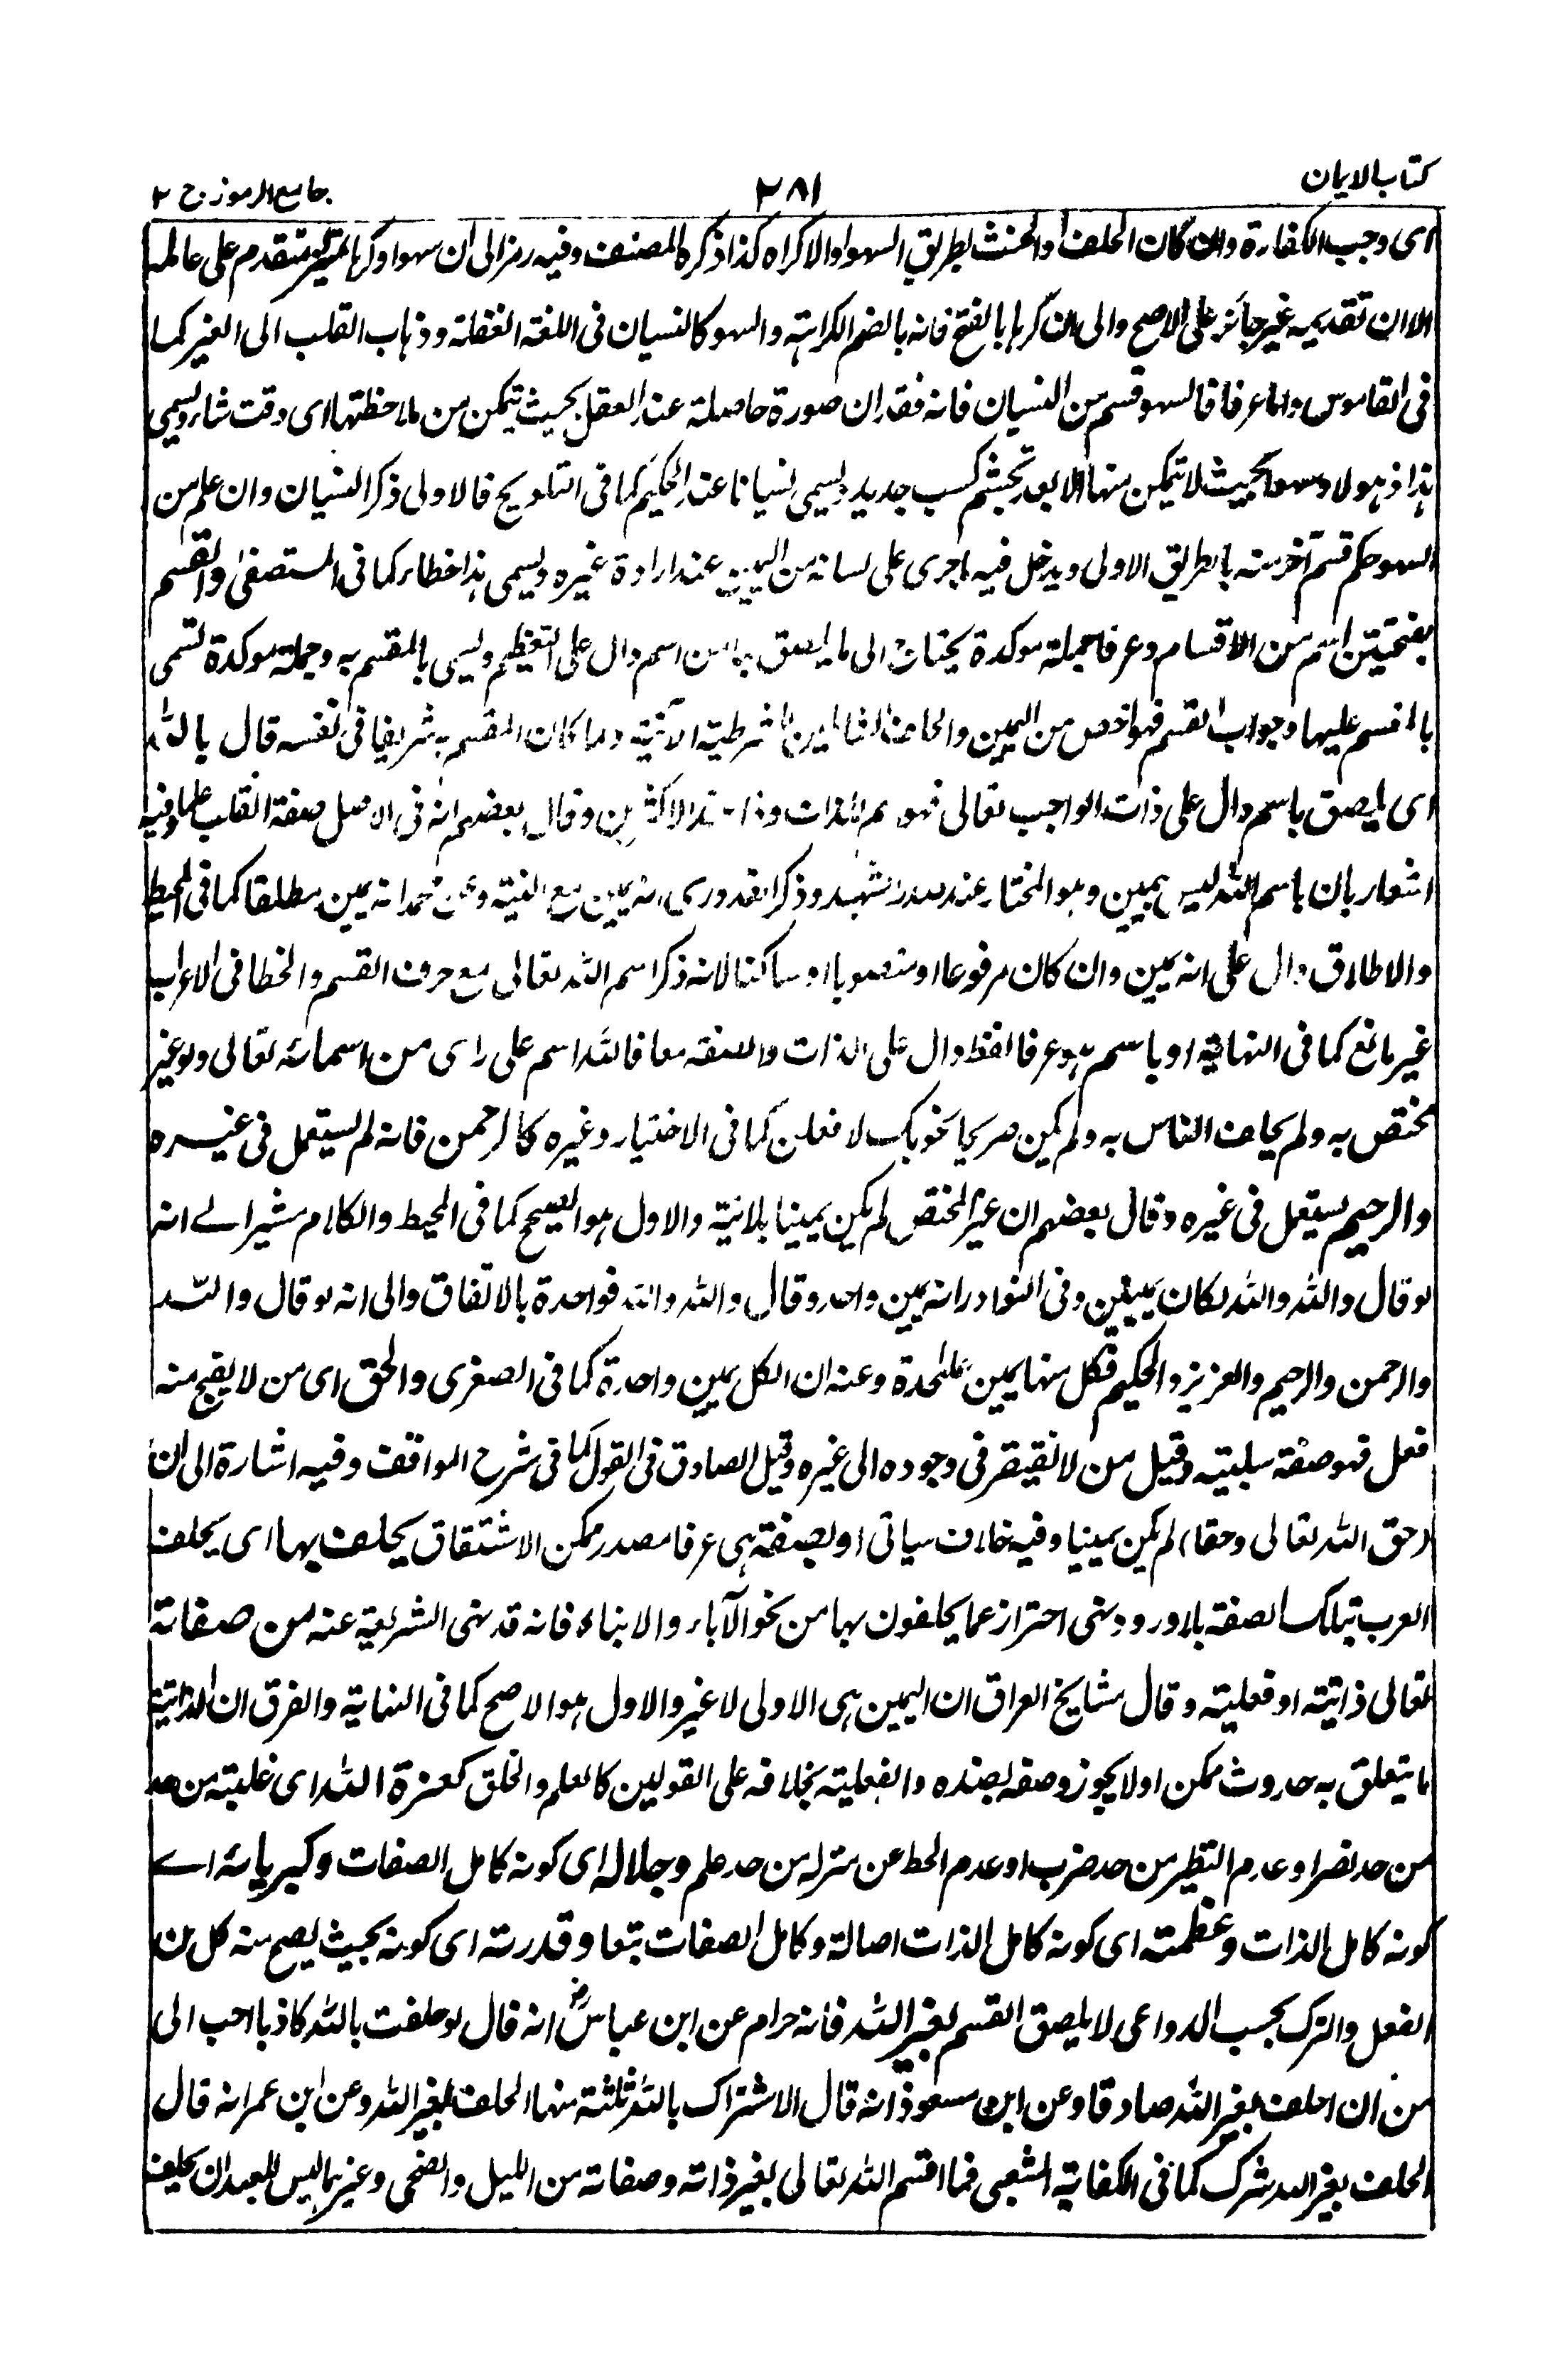 كتاب الايمان
٢٨١
جامع الرموز ج ٢
اى وجب الكفارة وان كان الحلف او الحنث بطريق السهو او الاكراه كذا ذكره المصنف وفيه رمز الى ان سهوا وكرها متقدم على عامله
الا ان تقديمه غير جائز على الاصح والى ان كرها بالفتح فانه بالضم الكراهة والسهو كالنسيان فى اللغة الغفلة وذهاب القلب الى الغير كما
فى القاموس واما عرفا فالسهو قسم من النسيان فانه فقدان صورة حاصلة عند العقل بحيث يتمكن من ملاحظتها اى وقت شاء ويسمى
هذا ذهولا وسهوا بحيث لا يتمكن منها الا بعد تجشم كسب جديد ويسمى نسيانا عند الحكيم كما فى التلويح فالاولى ذكر النسيان وان علم من
السهو حكم قسم آخر منه بالطريق الاولى ويدخل فيه اجرى على لسانه من اليمين عند ارادة غيره ويسمى هذا خطاء كما فى المستصفى والقسم
بفتحتين اسم من الاقسام وعرفا جملة موكدة يحتاج الى ما يلصق بها من اسم دال على التعظيم ويسمى بالمقسم به وجملة موكدة تسمى
بالمقسم عليها وجواب القسم فهو اخص من اليمين والحلف الشاملين للشرطية الآتية ولما كان المقسم به شريفا فى نفسه قال بالله
اى يلصق باسم دال على ذات الواجب تعالى فهو اسم للذات وذا عند الاكثرين وقال بعضهم انه فى الاصل صفة انقلب علما وفيه
اشعار بان باسم الله ليس بيمين وهو المختار عند صدر الشهيد وذكر القدورى انه يمين مع النية وعن محمد انه يمين مطلقا كما فى المحيط
والاطلاق دال على انه يمين وان كان مرفوعا او منصوبا او ساكنا لانه ذكر اسم الله تعالى مع حرف القسم والخطا فى الاعراب
غير مانع كما فى النهاية او باسم هو عرفا لفظ دال على الذات والصفة معا فالله اسم على راى من اسمائه تعالى ولو غير
مختص به ولم يحلف الناس به ولم يكن صريحا نحو بك لافعلن كما فى الاختيار وغيره كالرحمن فانه لم يستعمل فى غيره
والرحيم يستعمل فى غيره وقال بعضهم ان غير المختص لم يكن يمينا بلا نية والاول هو الصحيح كما فى المحيط والكلام مشير الى انه
لو قال والله والله لكان يمينين وفى النوادر انه يمين واحد وقال والله والله فواحدة بالاتفاق والى انه لو قال والله
والرحمن والرحيم والعزيز والحكيم فكل منها يمين علىحدة وعنه ان الكل يمين واحدة كما فى الصغرى والحق اى من لا يقبح منه
فعل فهو صفة سلبية وقيل من لا يفتقر فى وجوده الى غيره وقيل الصادق فى القول كما فى شرح المواقف وفيه اشارة الى ان
(حق الله تعالى وحقا) لم يكن يمينا وفيه خلاف سياتى او بصفة هى عرفا مصدر ممكن الاشتقاق يحلف بها اى يحلف
العرب بتلك الصفة بلا ورود نهى احتراز عما يحلفون بها من نحو الآباء والابناء فانه قد نهى الشريعة عنه من صفاته
تعالى ذاتية او فعلية وقال مشايخ العراق ان اليمين هى الاولى لا غير والاول هو الاصح كما فى النهاية والفرق ان الذاتية
ما يتعلق به حدوث ممكن او لا يجوز وصفه بضده والفعلية بخلافه على القولين كالعلم والخلق كعزة الله اى غلبته من حد
من حد نصر او عدم النظير من حد ضرب او عدم الحط عن منزله من حد علم وجلاله اى كونه كامل الصفات وكبريائه اى
كونه كامل الذات وعظمته اى كونه كامل الذات اصالة وكامل الصفات تبعا وقدرته اى كونه بحيث يصح منه كل من
الفعل والترك بحسب الدواعى لا يلصق القسم بغير الله فانه حرام عن ابن عباس رض انه قال لو حلفت بالله كاذبا احب الى
من ان احلف بغير الله صادقا وعن ابن مسعود انه قال الاشتراك بالله ثلثة منها الحلف بغير الله وعن ابن عمر انه قال
الحلف بغير الله شرك كما فى الكفاية الشعبى فما اقسم الله تعالى بغير ذاته وصفاته من الليل والضحى وغيرهما ليس للعبد ان يحلف